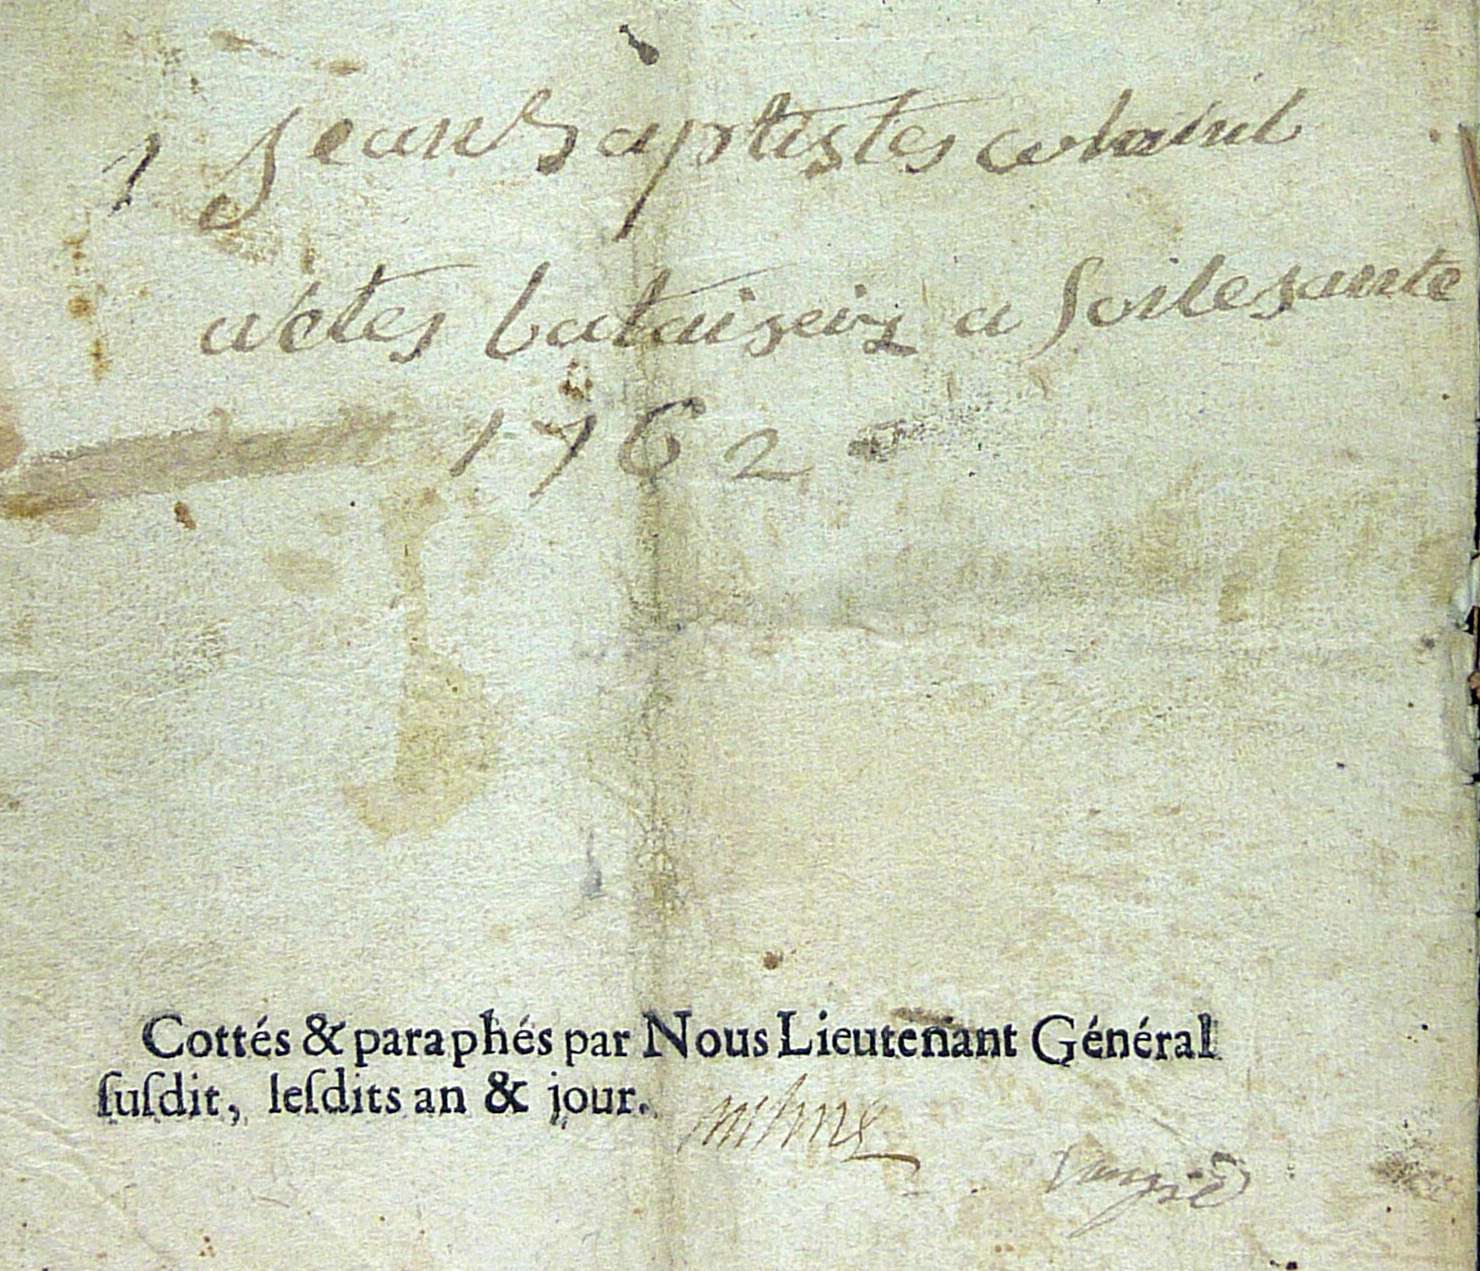 Jean Baptistes
actes a soilesante
1762
Cottés & paraphés par Nous Lieutenant Général
ſuſdit, leſdits an & jour.